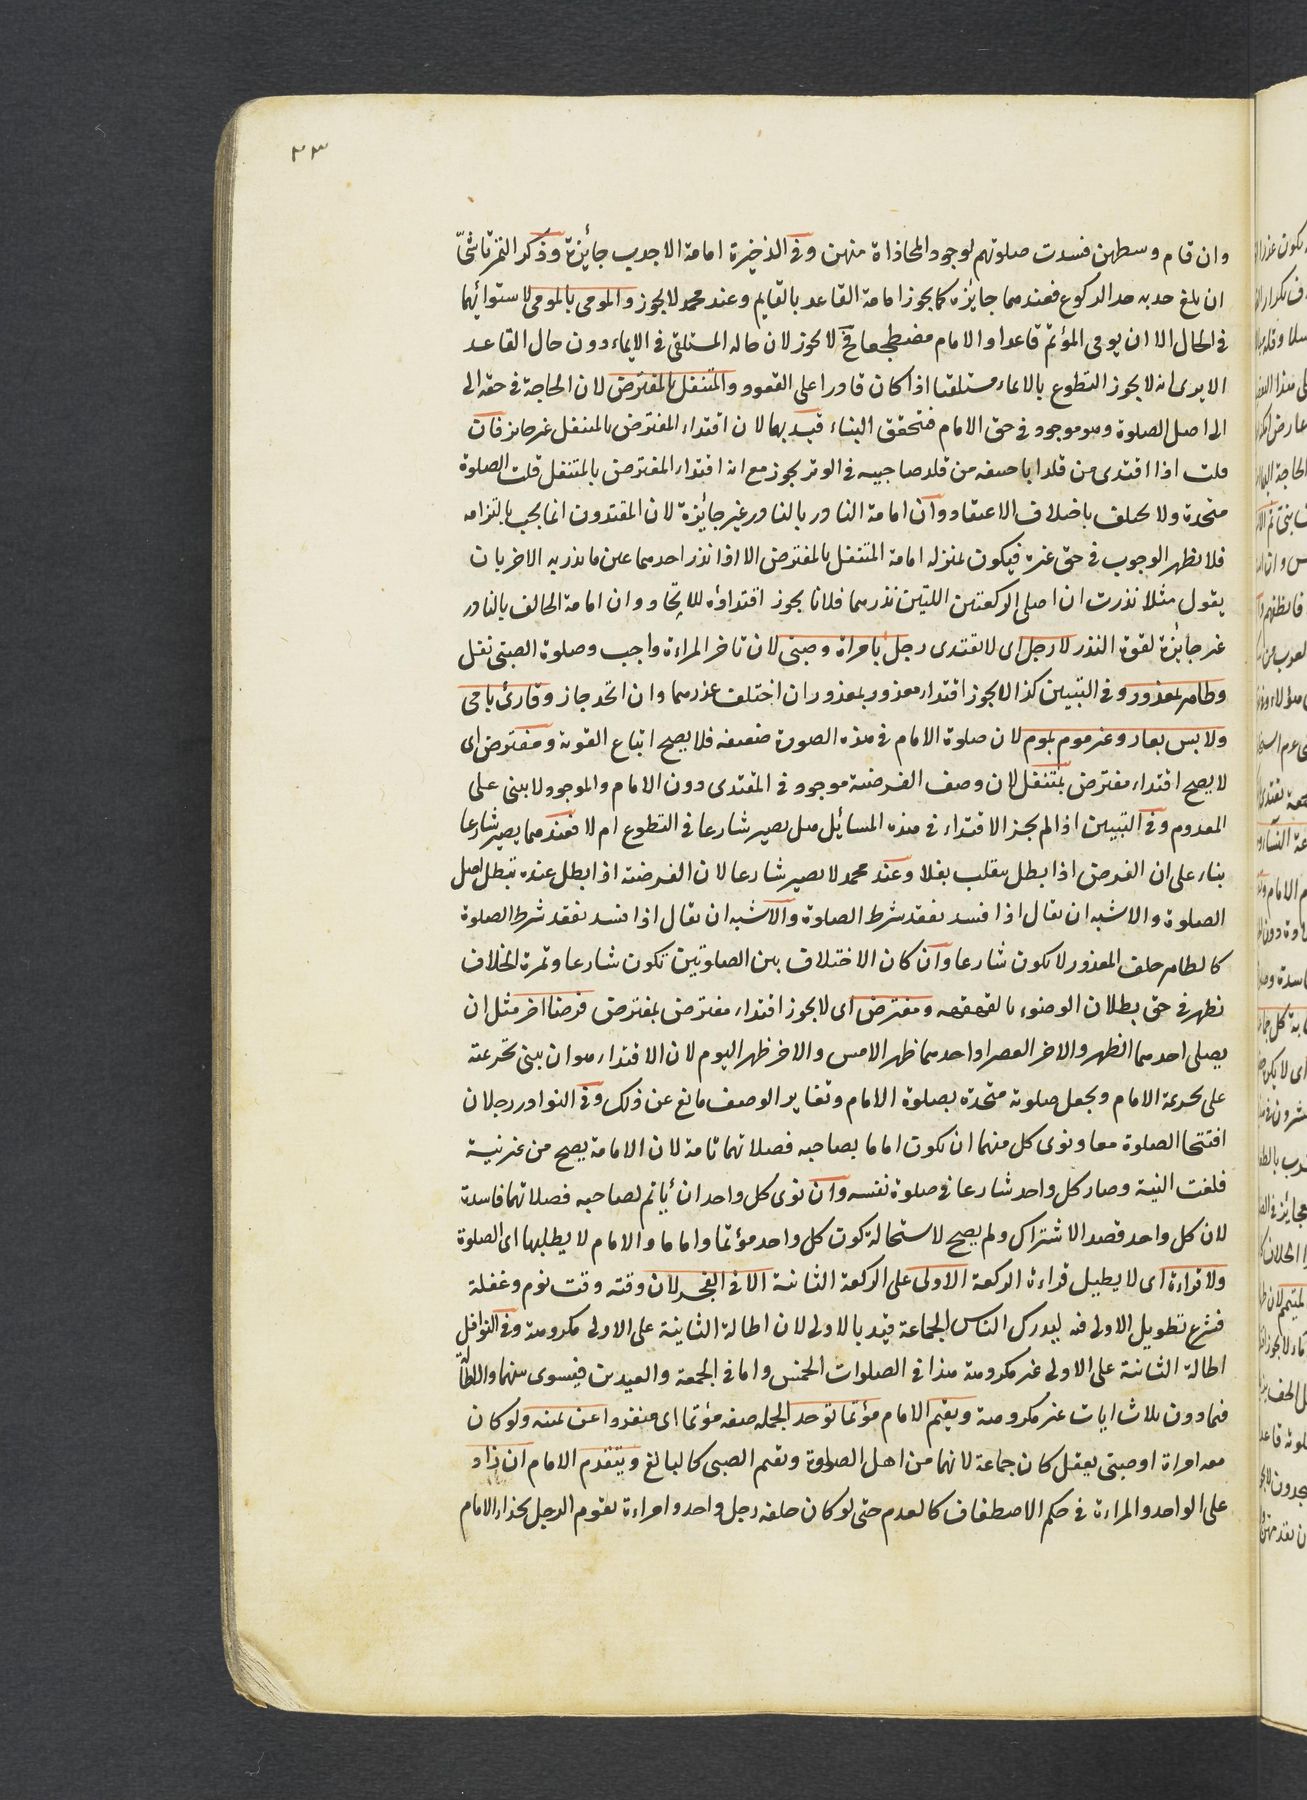 ٣٣
وان قام وسطهن فسدت صلوتهم لوجود المحاذاة منهن وفى الذخيرة امامة الاحدب جائزة وذكر التمرتاشىّ
ان بلغ حدبه حد الركوع فعندهما جائزه كما يجوز امامة القاعد بالقايم وعند محمد لا يجوز والمومى بالمومى لاستوائهما
فى الحال الا ان يومى المؤتم قاعدا والامام مضطجعا فح لا يجوز لان حاله المستلقى فى الايماء دون حال القاعد
الا يرى انه لا يجوز التطوع بالايماء مستلقيا اذا كان قادرا على القعود والمتنفل بالمفترض لان الحاجة فى حقه الى
الى اصل الصلوة وهو موجود فى حق الامام فتحقق البناء قيد بهما لان اقتداء المفترض بالمتنفل غير جايز فان
قلت اذا اقتدى من قلد ابا حنيفه من قلد صاحبيه فى الوتر يجوز مع انه اقتداء المفترض بالمتنفل قلت الصلوة
متحدة ولا يختلف باختلاف الاعتقاد وان امامة الناذر بالناذر غير جائزة لان المقتدون انما يجب بالتزامه
فلا يظهر الوجوب فى حق غيره فيكون بمنزله امامة المتنفل بالمفترض الا اذا نذر احدهما عين ما نذر به الاخر بان
يقول مثلا نذرت ان اصلى الركعتين اللتين نذرهما فلان يجوز اقتداؤه للاتحاد وان امامة الحالف بالناذر
غير جائزة لقوة النذر لا رجل اى لا يقتدى رجل بامراة وصبى لان تاخر المراءة واجب وصلوة الصبى نفل
وطاهر بمعذور وفى التبيين كذا لا يجوز اقتداء معذور بمعذور ان اختلف عذرهما وان اتحد جاز وقارئ بامى
ولابس بعار وغير موم بموم لان صلوة الامام فى هذه الصورة ضعيفه فلا يصح اتباع القويه ومفترض اى
لا يصح اقتداء مفترض بمتنفل لان وصف الفرضية موجود فى المقتدى دون الامام والموجود لا يبنى على
المعدوم وفى التبيين اذا لم يجز الاقتداء فى هذه المسائل هل يصير شارعا فى التطوع ام لا فعندهما يصير شارعا
بناء على ان الفرض اذا بطل ينقلب نفلا وعند محمد لا يصير شارعا لان الفرضية اذا بطل عنده تبطل اصل
الصلوة والاشبه ان يقال اذا فسد بفقد شرط الصلوة والاشبه ان يقال اذا فسد بفقد شرط الصلوة
كالطاهر خلف المعذور لا يكون شارعا وان كان الاختلاف بين الصلوتين تكون شارعا وثمرة الخلاف
تظهر فى حق بطلان الوضوء بالقهقهه ومفترض اى لا يجوز اقتداء مفترض بمفترض فرضا اخر مثل ان
يصلى احدهما الظهر والاخر العصر او احدهما ظهر الامس والاخر ظهر اليوم لان الاقتداء هو ان يبنى تحريمته
على تحريمة الامام ويجعل صلوته متحدة بصلوة الامام وتغاير الوصف مانع عن ذلك وفى النوادر رجلان
افتتحا الصلوة معا ونوى كل منهما ان يكون اماما بصاحبه فصلاتهما تامة لان الامامة يصح من غير نية
فلغت النية وصار كل واحد شارعا فى صلوة نفسه وان نوى كل واحد ان يأتم لصاحبه فصلاتهما فاسدة
لان كل واحد قصد الاشتراك ولم يصح لاستحالة كون كل واحد مؤتما واماما والامام لا يطلبها اى الصلوة
ولا قراءة اى لا يطيل قراءة الركعة الاولى على الركعة الثانية الا فى الفجر لان وقته وقت نوم وغفلة
فشرع تطويل الاولى فيه ليدرك الناس الجماعة قيد بالاولى لان اطالة الثانية على الاولى مكروهة وفى النوافل
اطالة الثانية على الاولى غير مكروهة هذا فى الصلوات الخمس واما فى الجمعة والعيدين فيسوى بينهما والاطالة
فيما دون ثلاث ايات غير مكروهة ويقيم الامام مؤتما توحد الجمله صفه مؤتما اى منفردا عن يمينه ولو كان
معه امراة او صبى يعقل كان جماعة لانهما من اهل الصلوة ويقيم الصبى كالبالغ ويتقدم الامام ان زاد
على الواحد والمراءة فى حكم الاصطفاف كالعدم حتى لو كان خلفه رجل واحد وامراءة يقوم الرجل بحذاء الامام